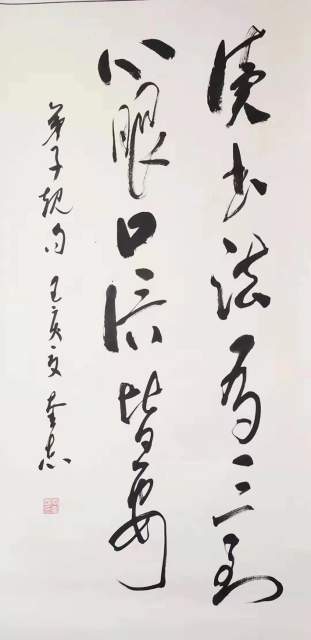 读书法有三到
心眼口信皆要
弟子规句 奎志